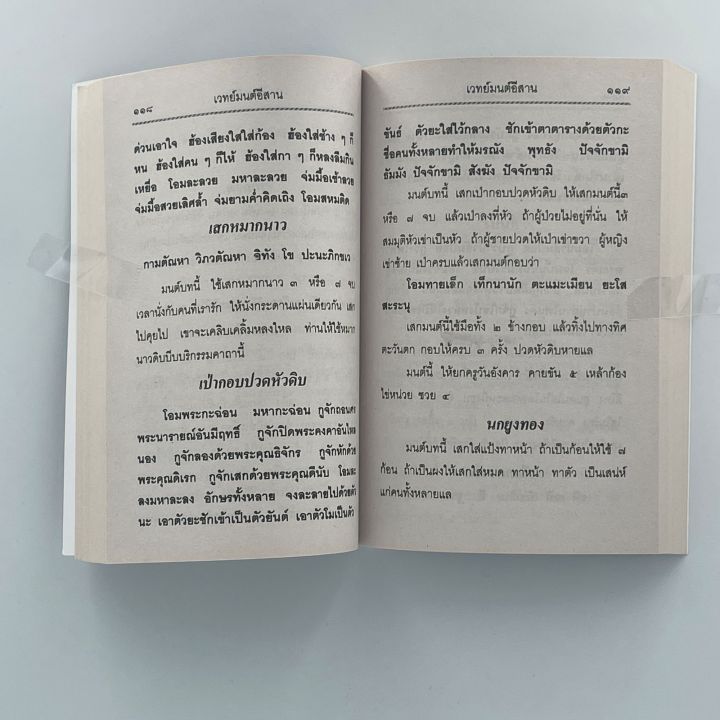 ๑๑๘ เวทย์มนต์อีสาน
ด่วนเอาใจ ฮ้องเสียงใสใส่ก้อง ฮ้องใส่ช้าง ๆ ก็
หน ฮ้องใส่คน ๆ ก็ไห้ ฮ้องใส่กา ๆ ก็หลงลืมกิน
เหยื่อ โอมละลวย มหาละลวย จ่มมื้อเช้าลวย
จ่มมื้อสวยเลิศล้ำ จ่มยามค่ำคิดเถิง โอมสหมติด
เสกหมากนาว
กามตัณหา วิภวตัณหา จิทัง โข ปะนะภิกขเว
มนต์บทนี้ ใช้เสกหมากนาว ๓ หรือ ๗ จบ
เวลานั่งกับคนที่เรารัก ให้นั่งกระดานแผ่นเดียวกัน เสก
ไปคุยไป เขาจะเคลิบเคลิ้มหลงใหล ท่านให้ใช้หมาก
นาวดิบบีบบริกรรมคาถานี้
เป่ากอบปวดหัวดิบ
โอมพระกะฉ่อน มหากะฉ่อน กูจักถอน
พระนารายณ์อันมีฤทธิ์ กูจักปิดพระคงคาอันไหล
นอง กูจักลองด้วยพระคุณธิจักร กูจักหักด้วย
พระคุณดิเรก กูจักเสกด้วยพระคุณดีนับ โอมละ
ลงมหาละลง อักษรทั้งหลาย จงละลายไปด้วยตัว
นะ เอาตัวยะชักเข้าเป็นตัวยันต์ เอาตัวโมเป็นตัว
เวทย์มนต์อีสาน ๑๑๙
ขันธ์ ตัวยะใส่ไว้กลาง ชักเข้าตาตารางด้วยตัวกะ
ชื่อคนทั้งหลายทำให้มรณัง พุทธัง ปัจจักขามิ
ธัมมัง ปัจจักขามิ สังฆัง ปัจจักขามิ
มนต์บทนี้ เสกเป่ากอบปวดหัวดิบ ให้เสกมนต์นี้๓
หรือ ๗ จบ แล้วเป่าลงที่หัว ถ้าผู้ป่วยไม่อยู่ที่นั่น ให้
สมมุติหัวเข่าเป็นหัว ถ้าผู้ชายปวดให้เป่าเข่าขวา ผู้หญิง
เข่าซ้าย เป่าครบแล้วเสกมนต์กอบว่า
โอมทายเล็ก เท็กนานัก ตะแมะเมียน ยะโส
สะระนุ
เสกมนต์นี้ใช้มือทั้ง ๒ ข้างกอบ แล้วทิ้งไปทางทิศ
ตะวันตก กอบให้ครบ ๓ ครั้ง ปวดหัวดิบหายแล
มนต์นี้ ให้ยกครูวันอังคาร คายขัน ๕ เหล้าก้อง
ไข่หน่วย ซวย ๔
นกยูงทอง
มนต์บทนี้ เสกใส่แป้งทาหน้า ถ้าเป็นก้อนให้ใช้ ๗
ก้อน ถ้าเป็นผงให้เสกใส่หมด ทาหน้า ทาตัว เป็นเสน่ห์
แก่คนทั้งหลายแล